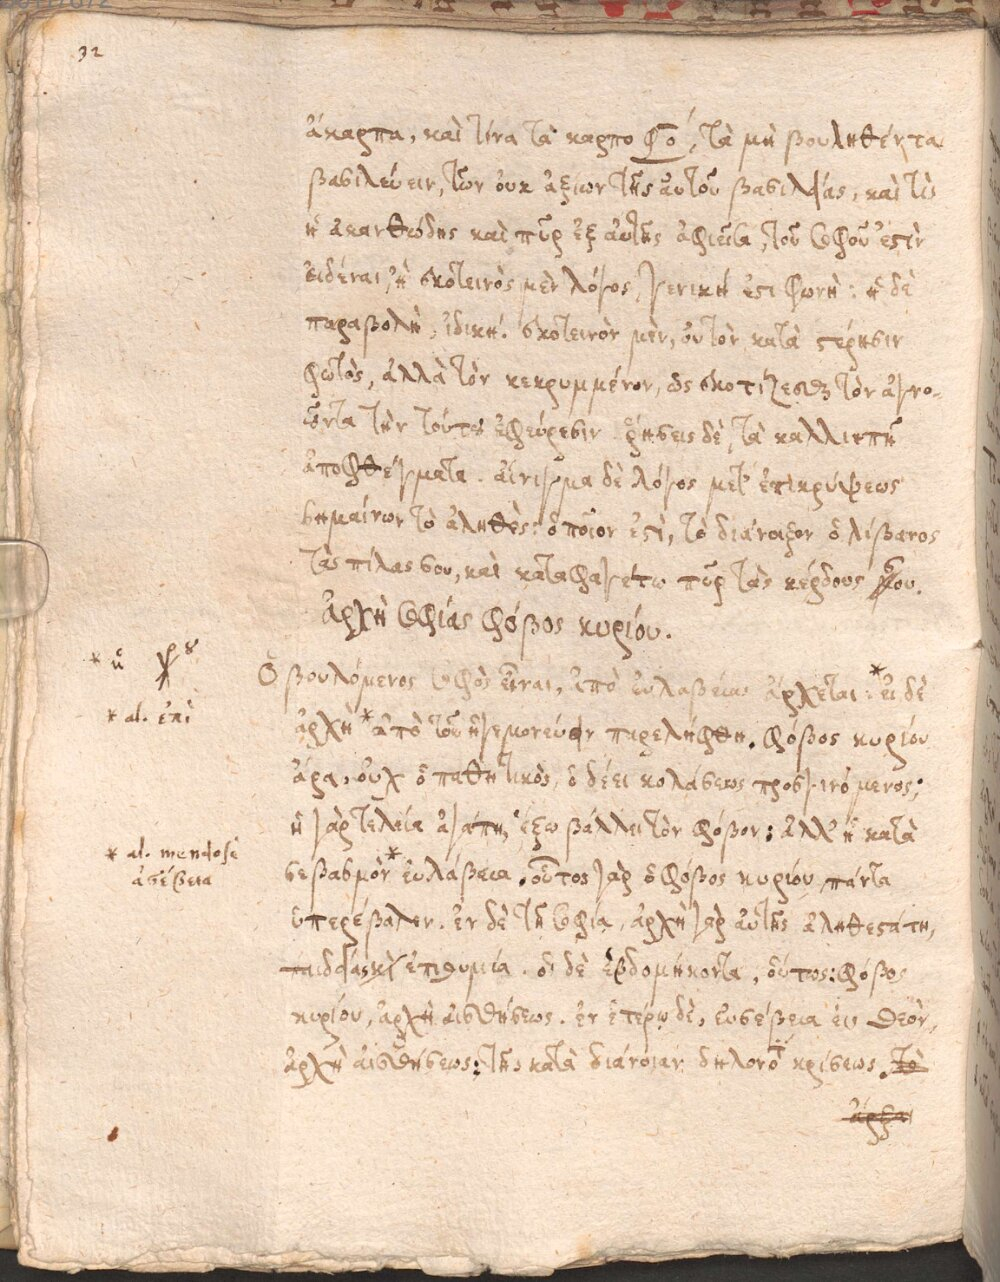 32
ἄκαρπα, καὶ τίνα τὰ καρποφό, τὰ μὴ βουληθέντα
βασιλεύειν, τῶν οὐκ ἀξίων τῆς αὐτοῦ βασιλείας, καὶ τίς
ἡ ἀκανθώδης καὶ πῦρ ἐξ αὐτῆς ἀφιεῖσα, τοῦ σοφοῦ ἐστὶν
εἰδέναι, ἢ σκοτεινὸς μὲν λόγος, γενική ἐστι φωνὴ: ἡ δὲ
παραβολὴ, ἰδική. σκοτεινὸν μὲν, οὐ τὸν κατὰ στέρησιν
φωτὸς, ἀλλὰ τὸν κεκρυμμένον, ὡς σκοτίζεσθαι τὸν ἀγνο-
οῦντα τὴν τούτου ἐφεύρεσιν. ῥήσεις δὲ, τὰ καλλιεπῆ
ἀποφθέγματα. αἴνιγμα δὲ λόγος μετ' ἐπικρύψεως
σημαίνων τὸ ἀληθὲς: ὁποῖον ἐστὶ, τὸ διάνοιξον ὁ λίβανος
τὰς πύλας σου, καὶ καταφαγέτω πῦρ τὰς κέδρους σου.
Ἀρχὴ σοφίας φόβος κυρίου.
* al. ἐπὶ
Ὁ βουλόμενος σοφὸς εἶναι, ἀπὸ εὐλαβείας ἄρχεται: * εἰ δὲ
ἀρχὴ * ἀπὸ τοῦ ἡγεμονεύειν παρελήφθη. φόβος κυρίου
ἄρα, οὐχ ὁ παθητικὸς, ὁ δέει κολάσεως προσγινόμενος;
ἡ γὰρ τελεία ἀγάπη, ἔξω βάλλει τὸν φόβον: ἀλλ' ἡ κατὰ
* al. mendosè
ἀσέβεια
σεβασμὸν * εὐλάβεια. οὗτος γὰρ ὁ φόβος κυρίου, πάντα
ὑπερέβαλεν. ἐν δὲ τῇ σοφίᾳ, ἀρχὴ γὰρ αὐτῆς ἀληθεστάτη,
παιδείας ἐπιθυμία. οἱ δὲ ἑβδομήκοντα, οὕτως: φόβος
κυρίου, ἀρχὴ αἰσθήσεως. ἐν ἑτέρῳ δὲ, εὐσέβεια εἰς Θεὸν,
ἀρχὴ αἰσθήσεως: τῆς κατὰ διάνοιαν δηλονότι κρίσεως. τὸ